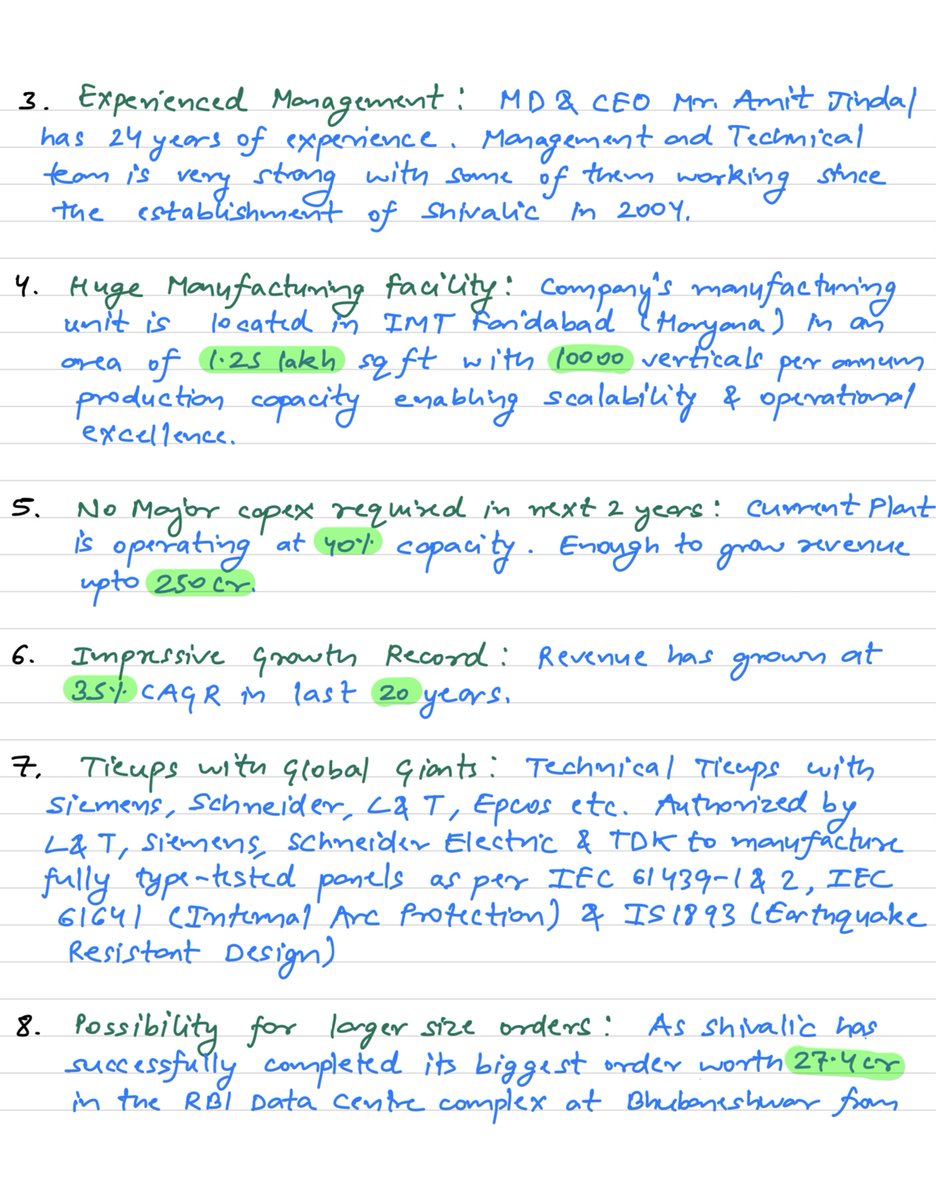 3. Experienced Management: MD & CEO Mr. Amit Jindal
has 24 years of experience. Management and Technical
team is very strong with some of them working since
the establishment of Shivalic in 2004.
4. Huge Manufacturing facility: Company's manufacturing
unit is located in IMT Faridabad (Haryana) in an
area of 1.25 lakh sq ft with 10000 verticals per annum
production capacity enabling scalability & operational
excellence.
5. No Major capex required in next 2 years: Current Plant
is operating at 40% capacity. Enough to grow revenue
upto 250 cr.
6. Impressive Growth Record: Revenue has grown at
35% CAGR in last 20 years.
7. Tieups with Global Giants: Technical Tieups with
Siemens, Schneider, L& T, Epcos etc. Authorized by
L& T, Siemens, Schneider Electric & TDK to manufacture
fully type-tested panels as per IEC 61439-1 & 2, IEC
61641 (Internal Arc Protection) & IS 1893 (Earthquake
Resistant Design)
8. Possibility for larger size orders: As Shivalic has
successfully completed its biggest order worth 27.4 cr
in the RBI Data Centre complex at Bhubaneshwar from